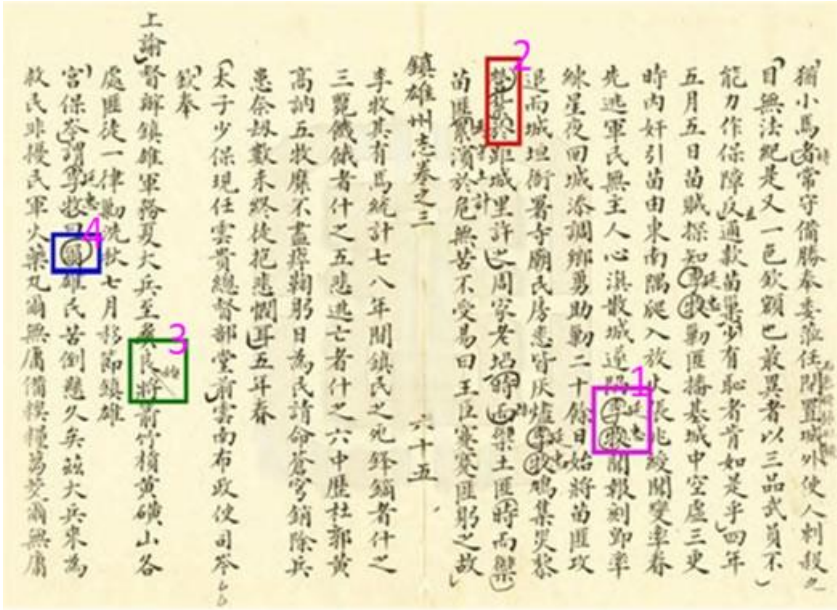 猶小馬者常守備勝奉委蒞任閉置城外使人刺殺之
目無法紀是又一色欽額巴最異者以三品武員不
能力作保障反通款苗巢少有恥者肯如是乎四年
五月五日苗賊探知李牧勦匪播基城中空虛三更
時內奸引苗由東南隅爬入放火張兆綬聞變率眷
先逃軍民無主人心渙散城遂陷李牧聞報刻即率
練星夜回城添調鄉勇助勦二十餘日始將苗匪攻
退而城垣衙署寺廟民房悉皆灰燼李牧鳩集災黎
於距城里許之周家老塆時而禦土匪時而禦
苗匪屢瀕於危無苦不受易曰王臣蹇蹇匪躬之故
鎮雄州志卷之三 六十五
李牧其有焉統計七八年間鎮民之死鋒鏑者什之
三斃饑餓者什之五悲逃亡者什之六中歷杜郭黃
高訥五牧靡不盡瘁鞠躬日為民請命蒼穹銷除兵
患奈劫數未終徒抱悲憫耳五年春
太子少保現任雲貴總督部堂前雲南布政使司岑
欽奉
上諭督辦鎮雄軍務夏大兵至奠良將箭竹槓黃磺山各
處匪徒一律勦洗秋七月移節鎮雄
宮保岑謂李牧曰鎮雄民苦倒懸久矣茲大兵來為
救民非擾民軍火藥丸爾無庸備糗糧芻茭爾無庸
1
2
3
4